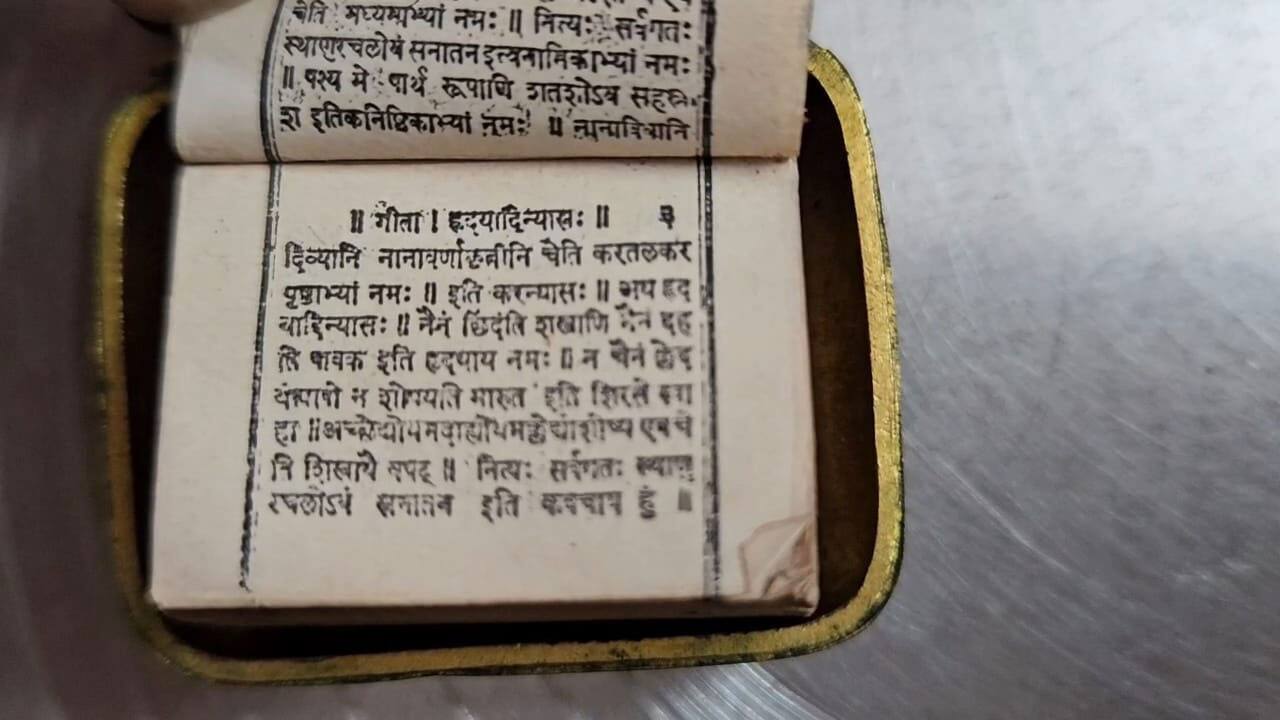 चेति मध्यमाभ्यां नमः ॥ नित्यः सर्वगतः
स्थाणुरचलोयं सनातन इत्यनामिकाभ्यां नमः
॥ पश्य मे पार्थ रूपाणि शतशोऽथ सहस्र
श इतिकनिष्ठिकाभ्यां नमः ॥ नानाविधानि
॥ गीता । हृदयादिन्यासः ॥ ३
दिव्यानि नानावर्णाकृतीनि चेति करतलकर
पृष्ठाभ्यां नमः ॥ इति करन्यासः ॥ अथ हृद
यादिन्यासः ॥ नैनं छिंदंति शस्त्राणि नैनं दह
ति पावक इति हृदयाय नमः ॥ न चैनं क्लेद
यंत्यापो न शोषयति मारुत इति शिरसे स्वा
हा ॥ अच्छेद्योयमदाह्योयमक्लेद्योशोष्य एव चे
ति शिखायै वषट् ॥ नित्यः सर्वगतः स्थाणु
रचलोऽयं सनातन इति कवचाय हुं ॥